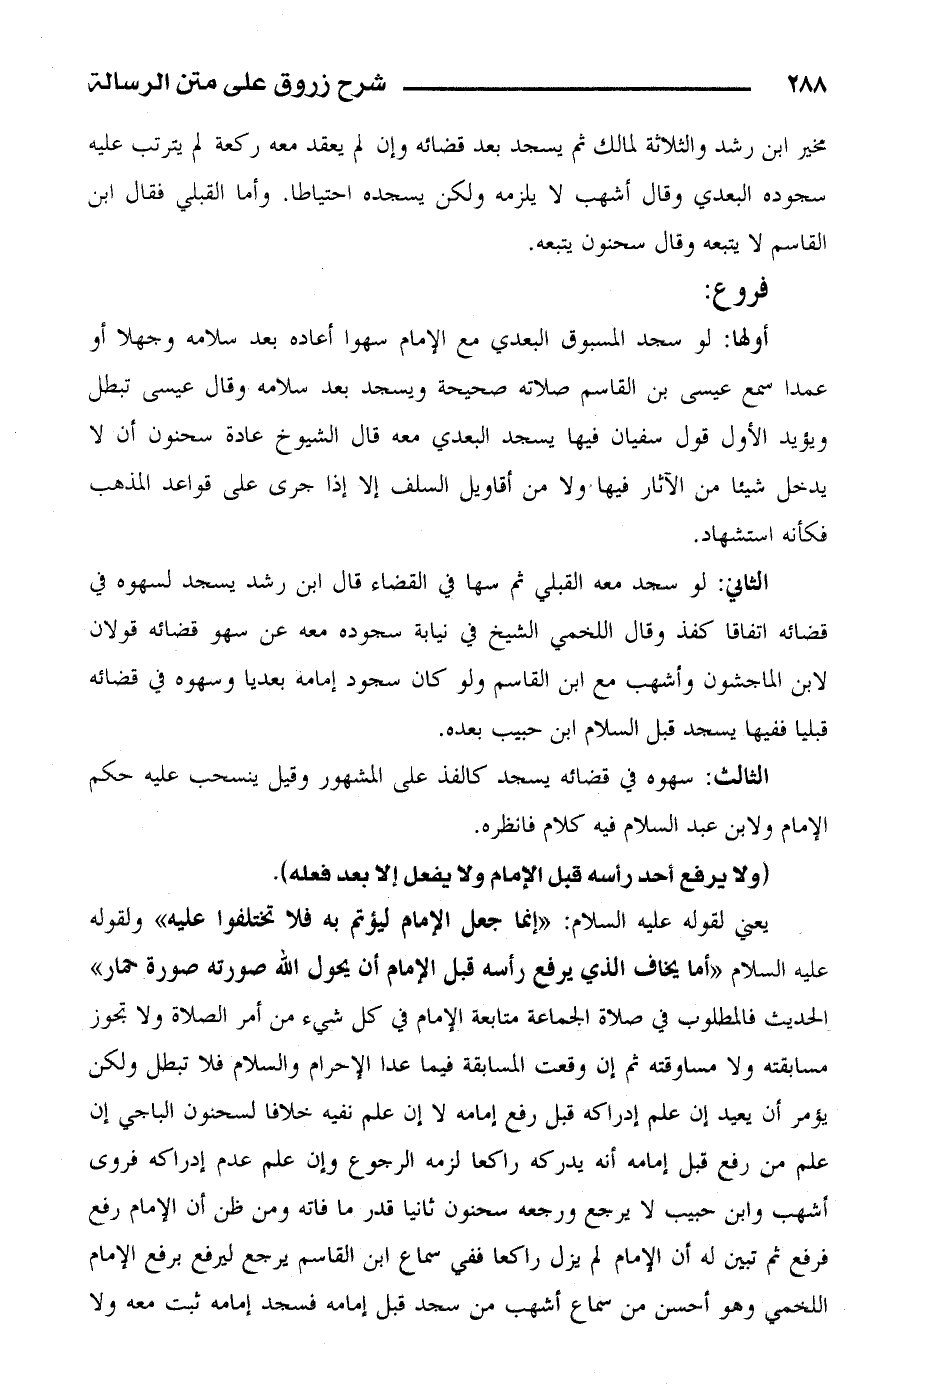 ٢٨٨ شرح زروق على متن الرسالة
مخير ابن رشد والثلاثة لمالك ثم يسجد بعد قضائه وإن لم يعقد معه ركعة لم يترتب عليه
سجوده البعدي وقال أشهب لا يلزمه ولكن يسجده احتياطا. وأما القبلي فقال ابن
القاسم لا يتبعه وقال سحنون يتبعه.
فروع:
أولها: لو سجد المسبوق البعدي مع الإمام سهوا أعاده بعد سلامه وجهلا أو
عمدا سمع عيسى بن القاسم صلاته صحيحة ويسجد بعد سلامه وقال عيسى تبطل
ويؤيد الأول قول سفيان فيها يسجد البعدي معه قال الشيوخ عادة سحنون أن لا
يدخل شيئا من الآثار فيها ولا من أقاويل السلف إلا إذا جرى على قواعد المذهب
فكأنه استشهاد.
الثاني: لو سجد معه القبلي ثم سها في القضاء قال ابن رشد يسجد لسهوه في
قضائه اتفاقا كفذ وقال اللخمي الشيخ في نيابة سجوده معه عن سهو قضائه قولان
لابن الماجشون وأشهب مع ابن القاسم ولو كان سجود إمامه بعديا وسهوه في قضائه
قبليا ففيها يسجد قبل السلام ابن حبيب بعده.
الثالث: سهوه في قضائه يسجد كالفذ على المشهور وقيل ينسحب عليه حكم
الإمام ولابن عبد السلام فيه كلام فانظره.
(ولا يرفع أحد رأسه قبل الإمام ولا يفعل إلا بعد فعله).
يعني لقوله عليه السلام: «إنما جعل الإمام ليؤتم به فلا تختلفوا عليه» ولقوله
عليه السلام «أما يخاف الذي يرفع رأسه قبل الإمام أن يحول الله صورته صورة حمار»
الحديث فالمطلوب في صلاة الجماعة متابعة الإمام في كل شيء من أمر الصلاة ولا تجوز
مسابقته ولا مساوقته ثم إن وقعت المسابقة فيما عدا الإحرام والسلام فلا تبطل ولكن
يؤمر أن يعيد إن علم إدراكه قبل رفع إمامه لا إن علم نفيه خلافا لسحنون الباجي إن
علم من رفع قبل إمامه أنه يدركه راكعا لزمه الرجوع وإن علم عدم إدراكه فروى
أشهب وابن حبيب لا يرجع ورجعه سحنون ثانيا قدر ما فاته ومن ظن أن الإمام رفع
فرفع ثم تبين له أن الإمام لم يزل راكعا ففي سماع ابن القاسم يرجع ليرفع برفع الإمام
اللخمي وهو أحسن من سماع أشهب من سجد قبل إمامه فسجد إمامه ثبت معه ولا